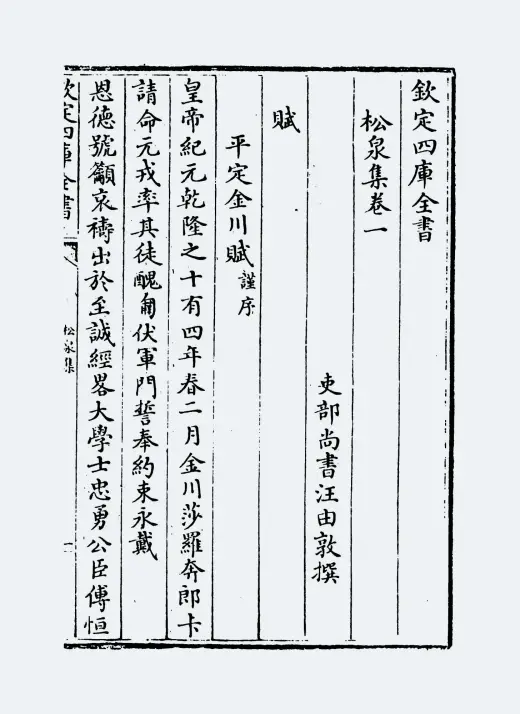 欽定四庫全書
松泉集卷一
吏部尚書汪由敦撰
賦
平定金川賦謹序
皇帝紀元乾隆之十有四年春二月金川莎羅奔郎卡
請命元戎率其徒醜匍伏軍門誓奉約束永戴
恩德號籲哀禱出於至誠經畧大學士忠勇公臣傅恒
欽定四庫全書
松泉集
一